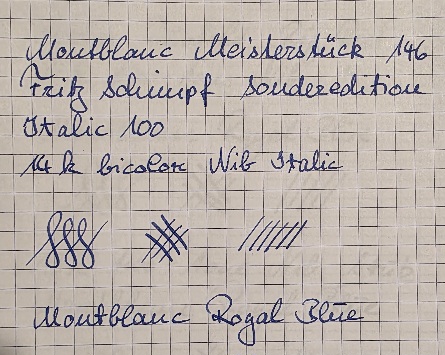 Montblanc Meisterstück 146
Fritz Schimpf Sonderedition
Italic 100
14 k bicolor Nib Italic
Montblanc Royal Blue